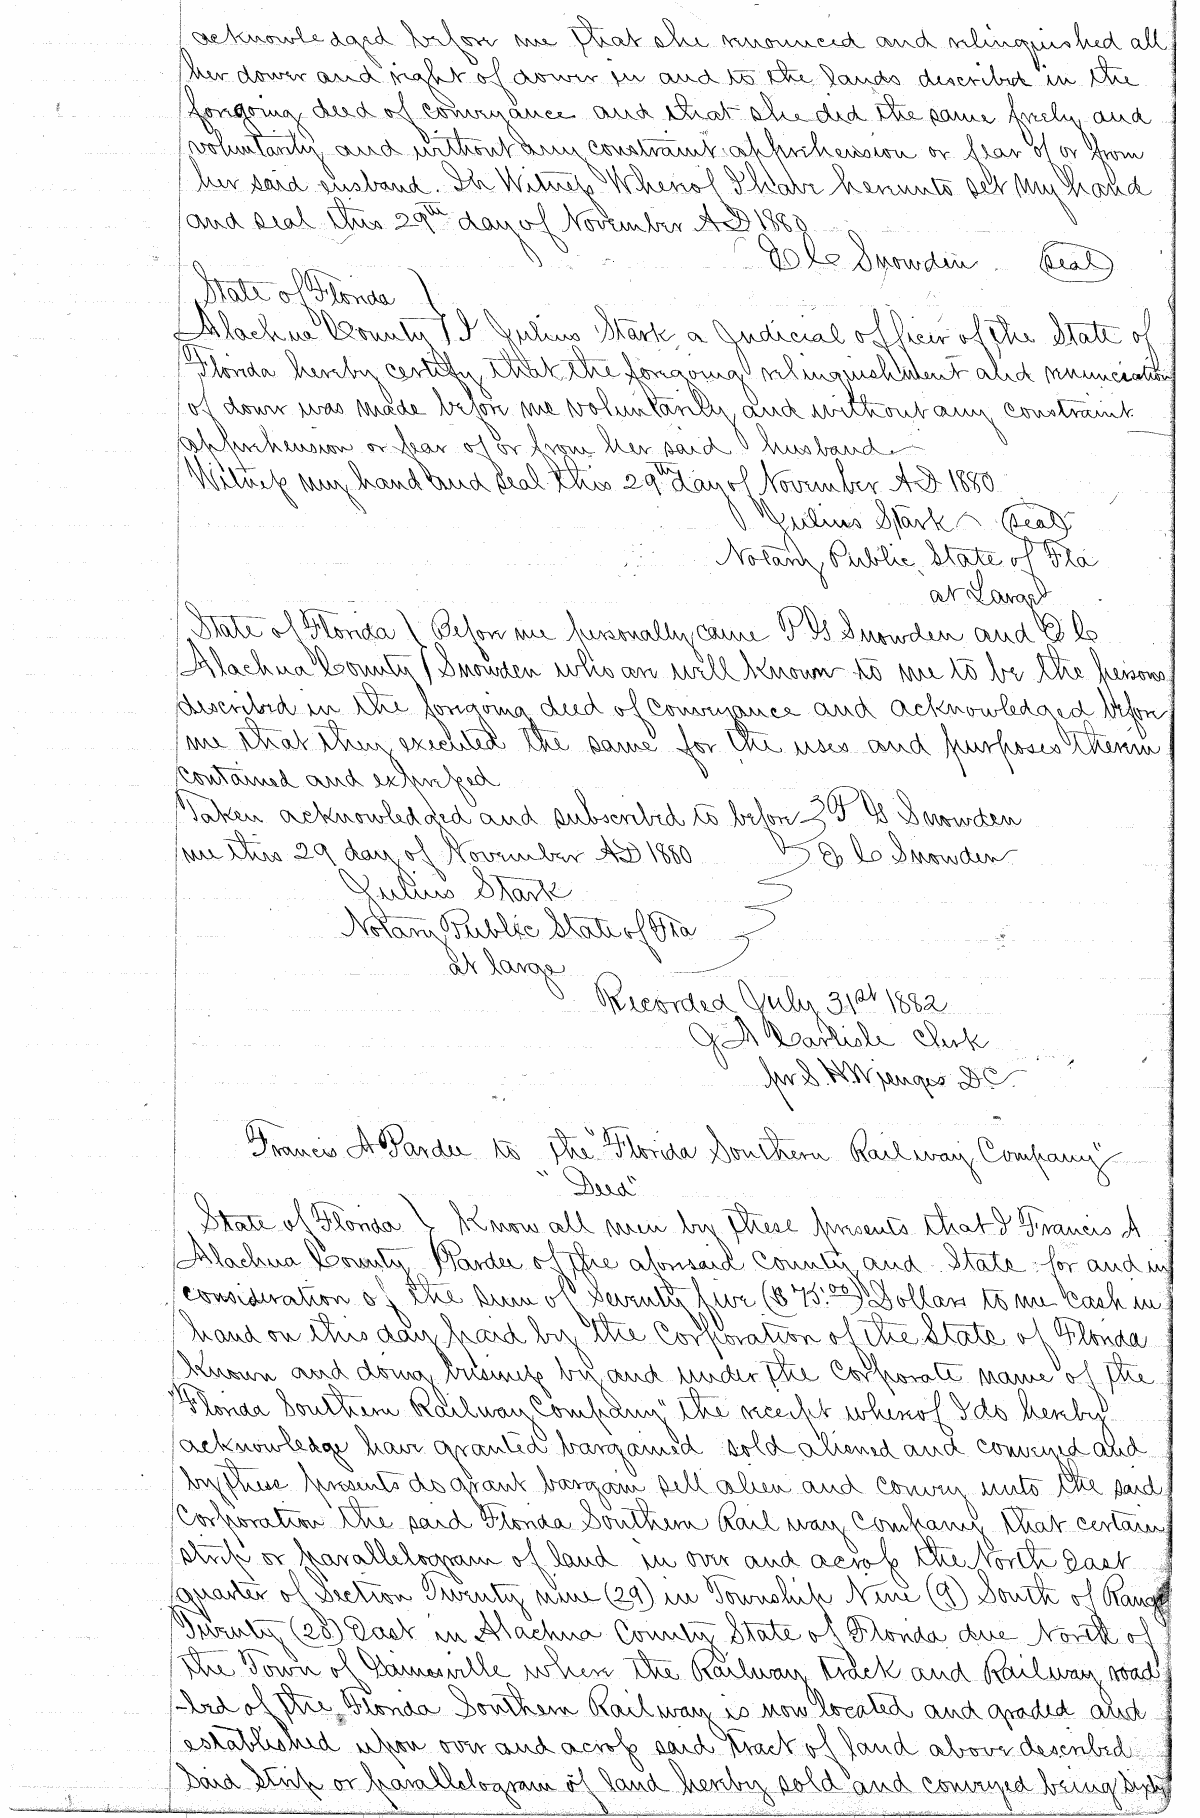 acknowledged before me that she renounced and relinquished all
her dower and right of dower in and to the lands described in the
foregoing deed of conveyance and that she did the same freely and
voluntarily and without any constraint apprehension or fear of or from
her said husband. In Witness Whereof I have hereunto set my hand
and seal this 29th day of November AD 1880
E C Snowden (seal)
State of Florida }
Alachua County } I Julius Stark a Judicial officer of the State of
Florida hereby certify that the foregoing relinquishment and renunciation
of dower was made before me voluntarily and without any constraint
apprehension or fear of or from her said husband
Witness my hand and seal this 29th day of November AD 1880
Julius Stark (seal)
Notary Public State of Fla
at Large
State of Florida } Before me personally came P G Snowden and E C
Alachua County } Snowden who are well known to me to be the persons
described in the foregoing deed of conveyance and acknowledged before
me that they executed the same for the uses and purposes therein
contained and expressed
Taken acknowledged and subscribed to before } P G Snowden
me this 29 day of November AD 1880 } E C Snowden
Julius Stark
Notary Public State of Fla
at large
Recorded July 31st 1882
J A Carlisle Clerk
per S. H. Wienges D.C.
Francis A Pardee to the "Florida Southern Railway Company"
"Deed"
State of Florida } Know all men by these presents that I Francis A
Alachua County Pardee of the aforesaid County and State for and in
consideration of the sum of Seventy five ($75.00) Dollars to me cash in
hand on this day paid by the Corporation of the State of Florida
known and doing business by and under the Corporate name of the
"Florida Southern Railway Company" the receipt whereof I do hereby
acknowledge have granted bargained sold aliened and conveyed and
by these presents do grant bargain sell alien and convey unto the said
Corporation the said Florida Southern Rail way Company that certain
strip or parallelogram of land in over and across the North East
quarter of Section Twenty nine (29) in Township Nine (9) South of Range
Twenty (20) East in Alachua County State of Florida due North of
the Town of Gainesville where the Railway track and Railway road
-bed of the Florida Southern Railway is now located and graded and
established upon over and across said tract of land above described
Said Strip or parallelogram of land hereby sold and conveyed being sixty